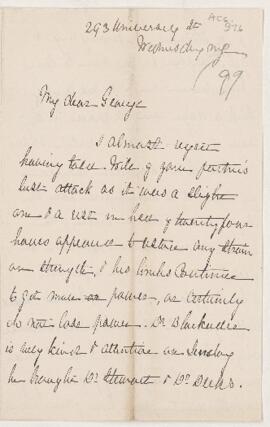 293 University St
Acc. 376
Wednesday mg
/99
My dear George
I almost regret
having told Kate of your father's
last attack as it was a slight
one & a rest in bed of twenty four
hours appeared to restore any strain
on strength, & his limbs continue
to get more power, or certainly
do not lose power. Dr Blackader
is very kind & attentive on Sunday
he brought Dr Stewart & Dr Deeks.